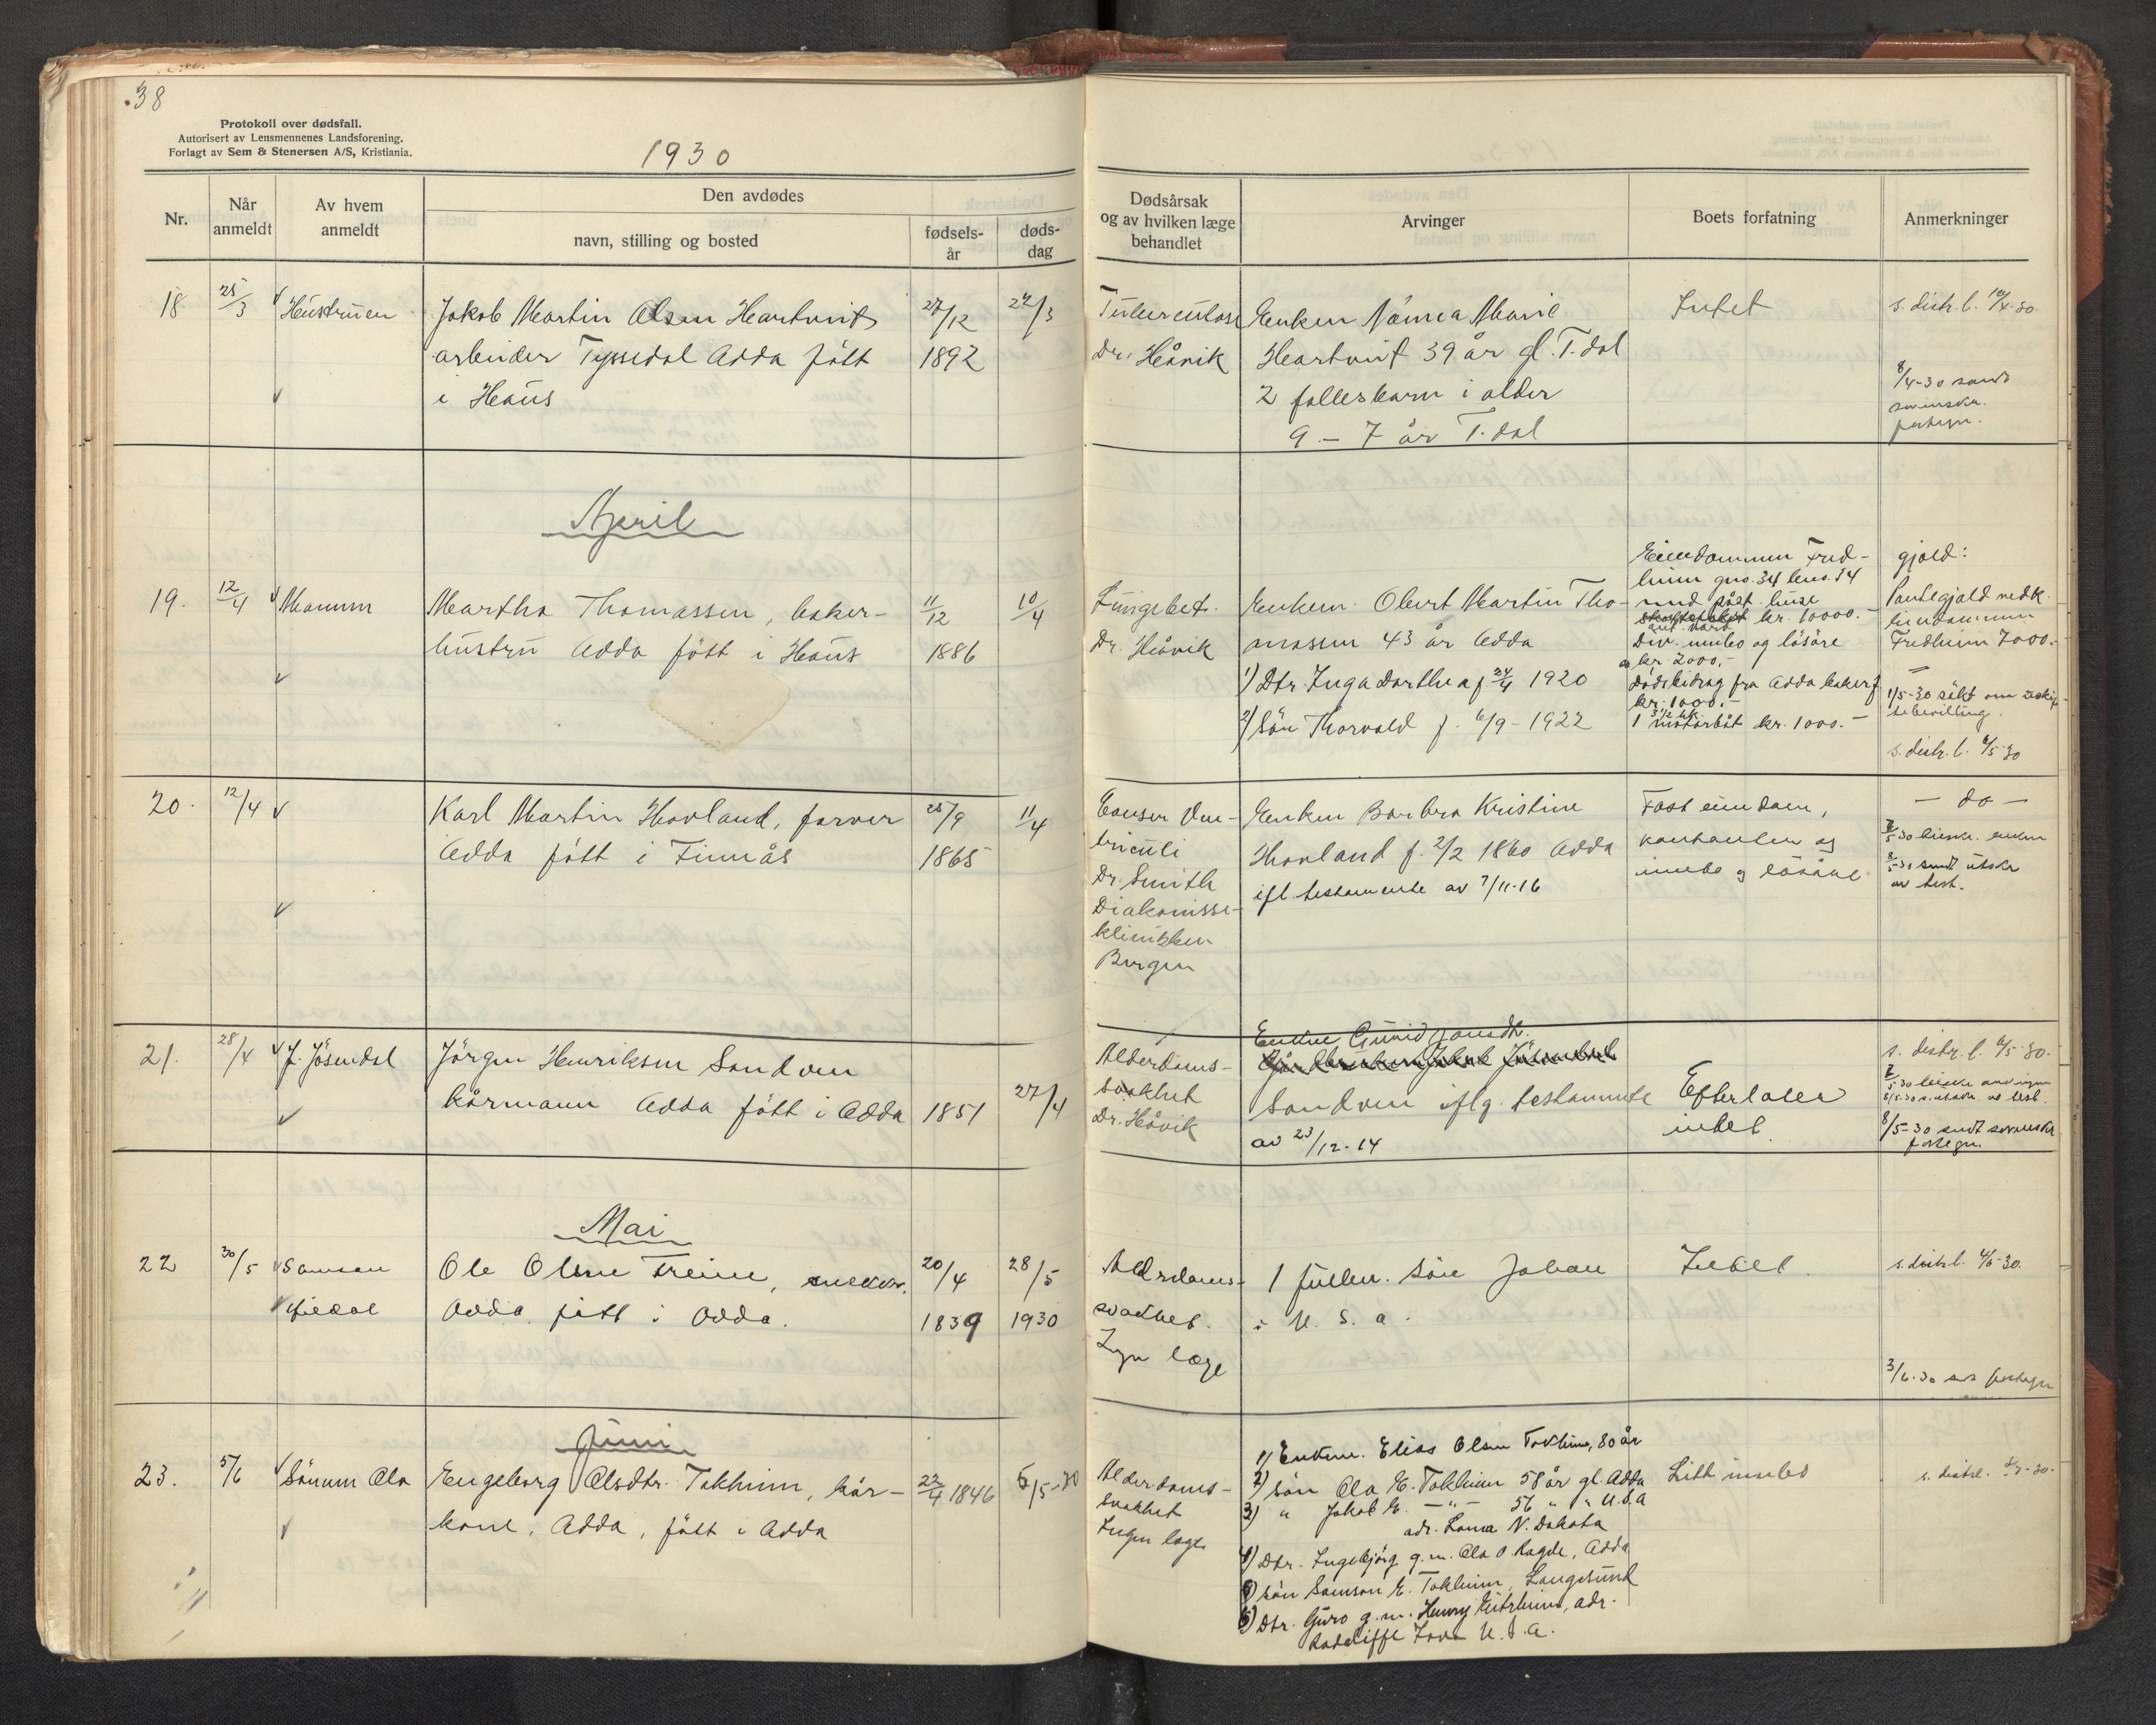 38
Protokoll over dødsfall.
Autorisert av Lensmennenes Landsforening.
Forlagt av Sem & Stenersen A/S, Kristiania.
1930
Nr.
Når anmeldt
Av hvem anmeldt
Den avdødes
navn, stilling og bosted
fødsels-år
døds-dag
Dødsårsak og av hvilken læge behandlet
Arvinger
Boets forfatning
Anmerkninger
18. 25/3 Hustruen
Jakob Martin Olsen Hartvit
arbeider Tyssedal Odda født
i Haus
27/12 1892
22/3
Tuberculose
Dr. Håvik
Enken Nanna Marie
Hartvit 39 år gl. T.dal
2 fellesbarn i alder
9 – 7 år T.dal
Intet
s. distr. l. 10/4-30.
8/4-30 sendt
fortegn.
April
19. 12/4 Mannen
Martha Thomassen, baker-
hustru Odda født i Haus
11/12 1886
10/4
Lungebet.
Dr. Håvik
Enkem. Olvert Martin Tho-
massen 43 år Odda
1) Dtr. Inga Dorthea f 24/4 1920
2) Sön Thorvald f. 6/9-1922
Eiendommen Fred-
heim gno. 34 bno. 34
med påst. huse
kr. 10000.-
Div. innbo og lösöre
kr. 2000.-
Dödsbidrag fra Odda bakerf
kr. 1000.-
3 1/2 hk.
1 motorbåt kr. 1000.-
gjeld:
Pantegjeld nedk.
eiendommen
Fredheim 7000.-
1/5-30 sökt om uskif-
tebevilling.
s. distr. l. 6/5 30
20. 12/4
Karl Martin Hovland, farver
Odda født i Finnås
25/9 1865
11/4
Cancer Ven-
triculi
Dr. Smith
Diakonisse-
klinikken
Bergen
Enken Barbra Kristine
Hovland f. 2/2 1860 Odda
ifl. testamente av 7/11-16
Fast eiendom,
kontanter og
innbo og lösöre
— do —
enken
sendt utskr
av test.
21. 28/4 J. Jösendal
Jörgen Henriksen Sandven
kårmann Odda født i Odda
1851
27/4
Alderdoms-
svakhet
Dr. Håvik
Enken Gunvid Jonsdtr.
Sandven iflg. testamente
av 23/12-14
Efterlater
intet.
s. distr. l. 6/5 30.
8/5-30 sendt
fortegn.
Mai
22 30/5 Samson
Ole Olsen Freim, snekker.
Odda, født i Odda.
20/4 1839
28/5 1930
Alderdoms-
svakhet.
Ingen læge
1 fullm. sön Johan
i U. S. A.
Intet.
s. distr. l. 4/6-30.
3/6-30 fortegn
Juni
23. 5/6 Sönnen Ola
Engeborg Olsdtr. Tokheim, kår-
kone, Odda, født i Odda
22/4 1846
6/5-30
Alderdoms-
svakhet
Ingen læge
1) Enkem. Elias Olsen Tokheim, 80 år
2) sön Ola E. Tokheim 58 år gl. Odda
3) " Jakob E. —"— 56 " " U.S.A
adr. Loma N. Dakota
4) Dtr. Ingebjörg g.m. Ola O. Ragde, Odda
5) sön Samson E. Tokheim, Langesund
6) Dtr. Guro g.m. Henry Eitrheim, adr.
Radcliffe Iova U.S.A.
Litt innbo
s. distr. l.